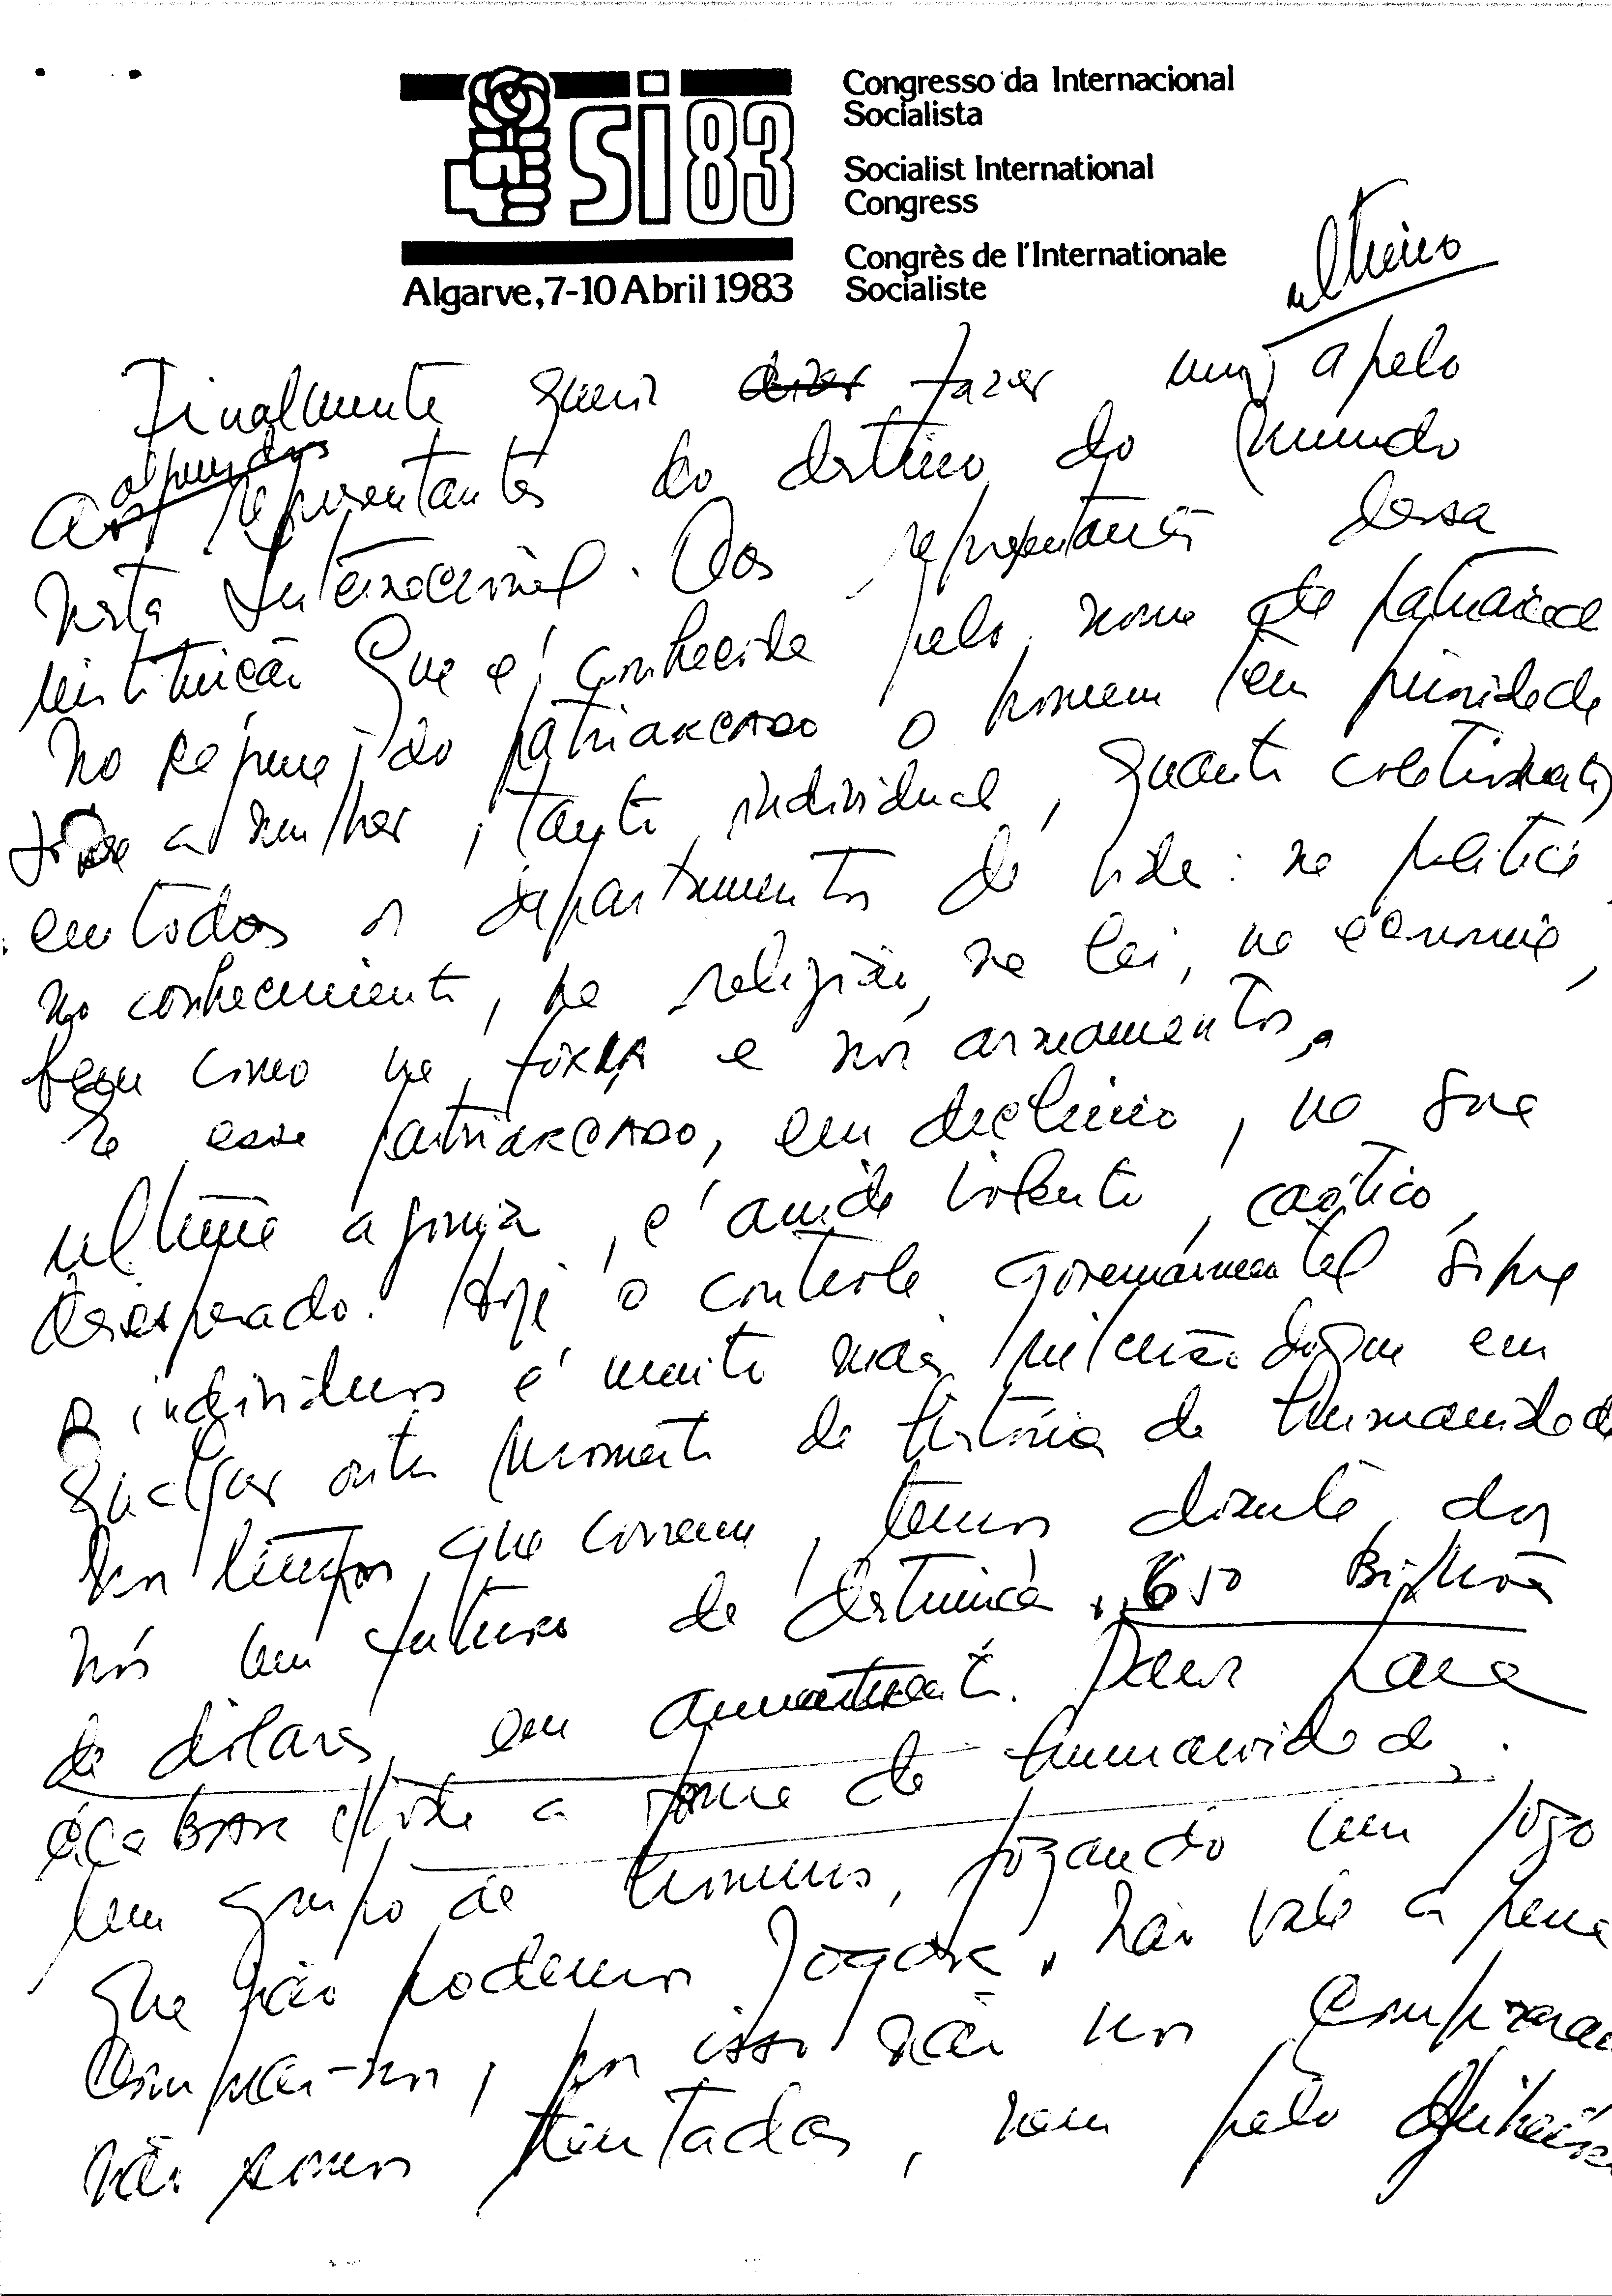 si 83
Algarve, 7-10 Abril 1983
Congresso da Internacional
Socialista
Socialist International
Congress
Congrès de l'Internationale
Socialiste
último
Finalmente quero dizer fazer um apelo
alguns dos
aos representantes do destino do mundo
nesta Internacional. Aos representantes dessa
instituição que é conhecida pelo nome de patriarcado
No Régime do patriarcado o homem tem prioridade
sobre a mulher, tanto individual, quanto coletivamente
em todos os departamentos da vida: na politica
no conhecimento, na religião, na lei, na economia,
bem como na força e nos armamentos,
e esse patriarcado, em declinio, na sua
ultima agonia, é ainda violento, caótico,
desesperado. Hoje o controle governamental sobre
o individuos é muito mais do que em
qualquer outro momento da história da humanidade
Nos tempos que correm, temos diante dos
nós um futuro de destruição. 650 Bilhões
de dólares em armamento. Daria para
acabar c/toda a fome da humanidade.
Um grupo de homens, jogando um jogo
que não podemos jogar. Não vale a pena
comprar-nos, por isso não nos compraram
não somos tentadas, nem pelo dinheiro